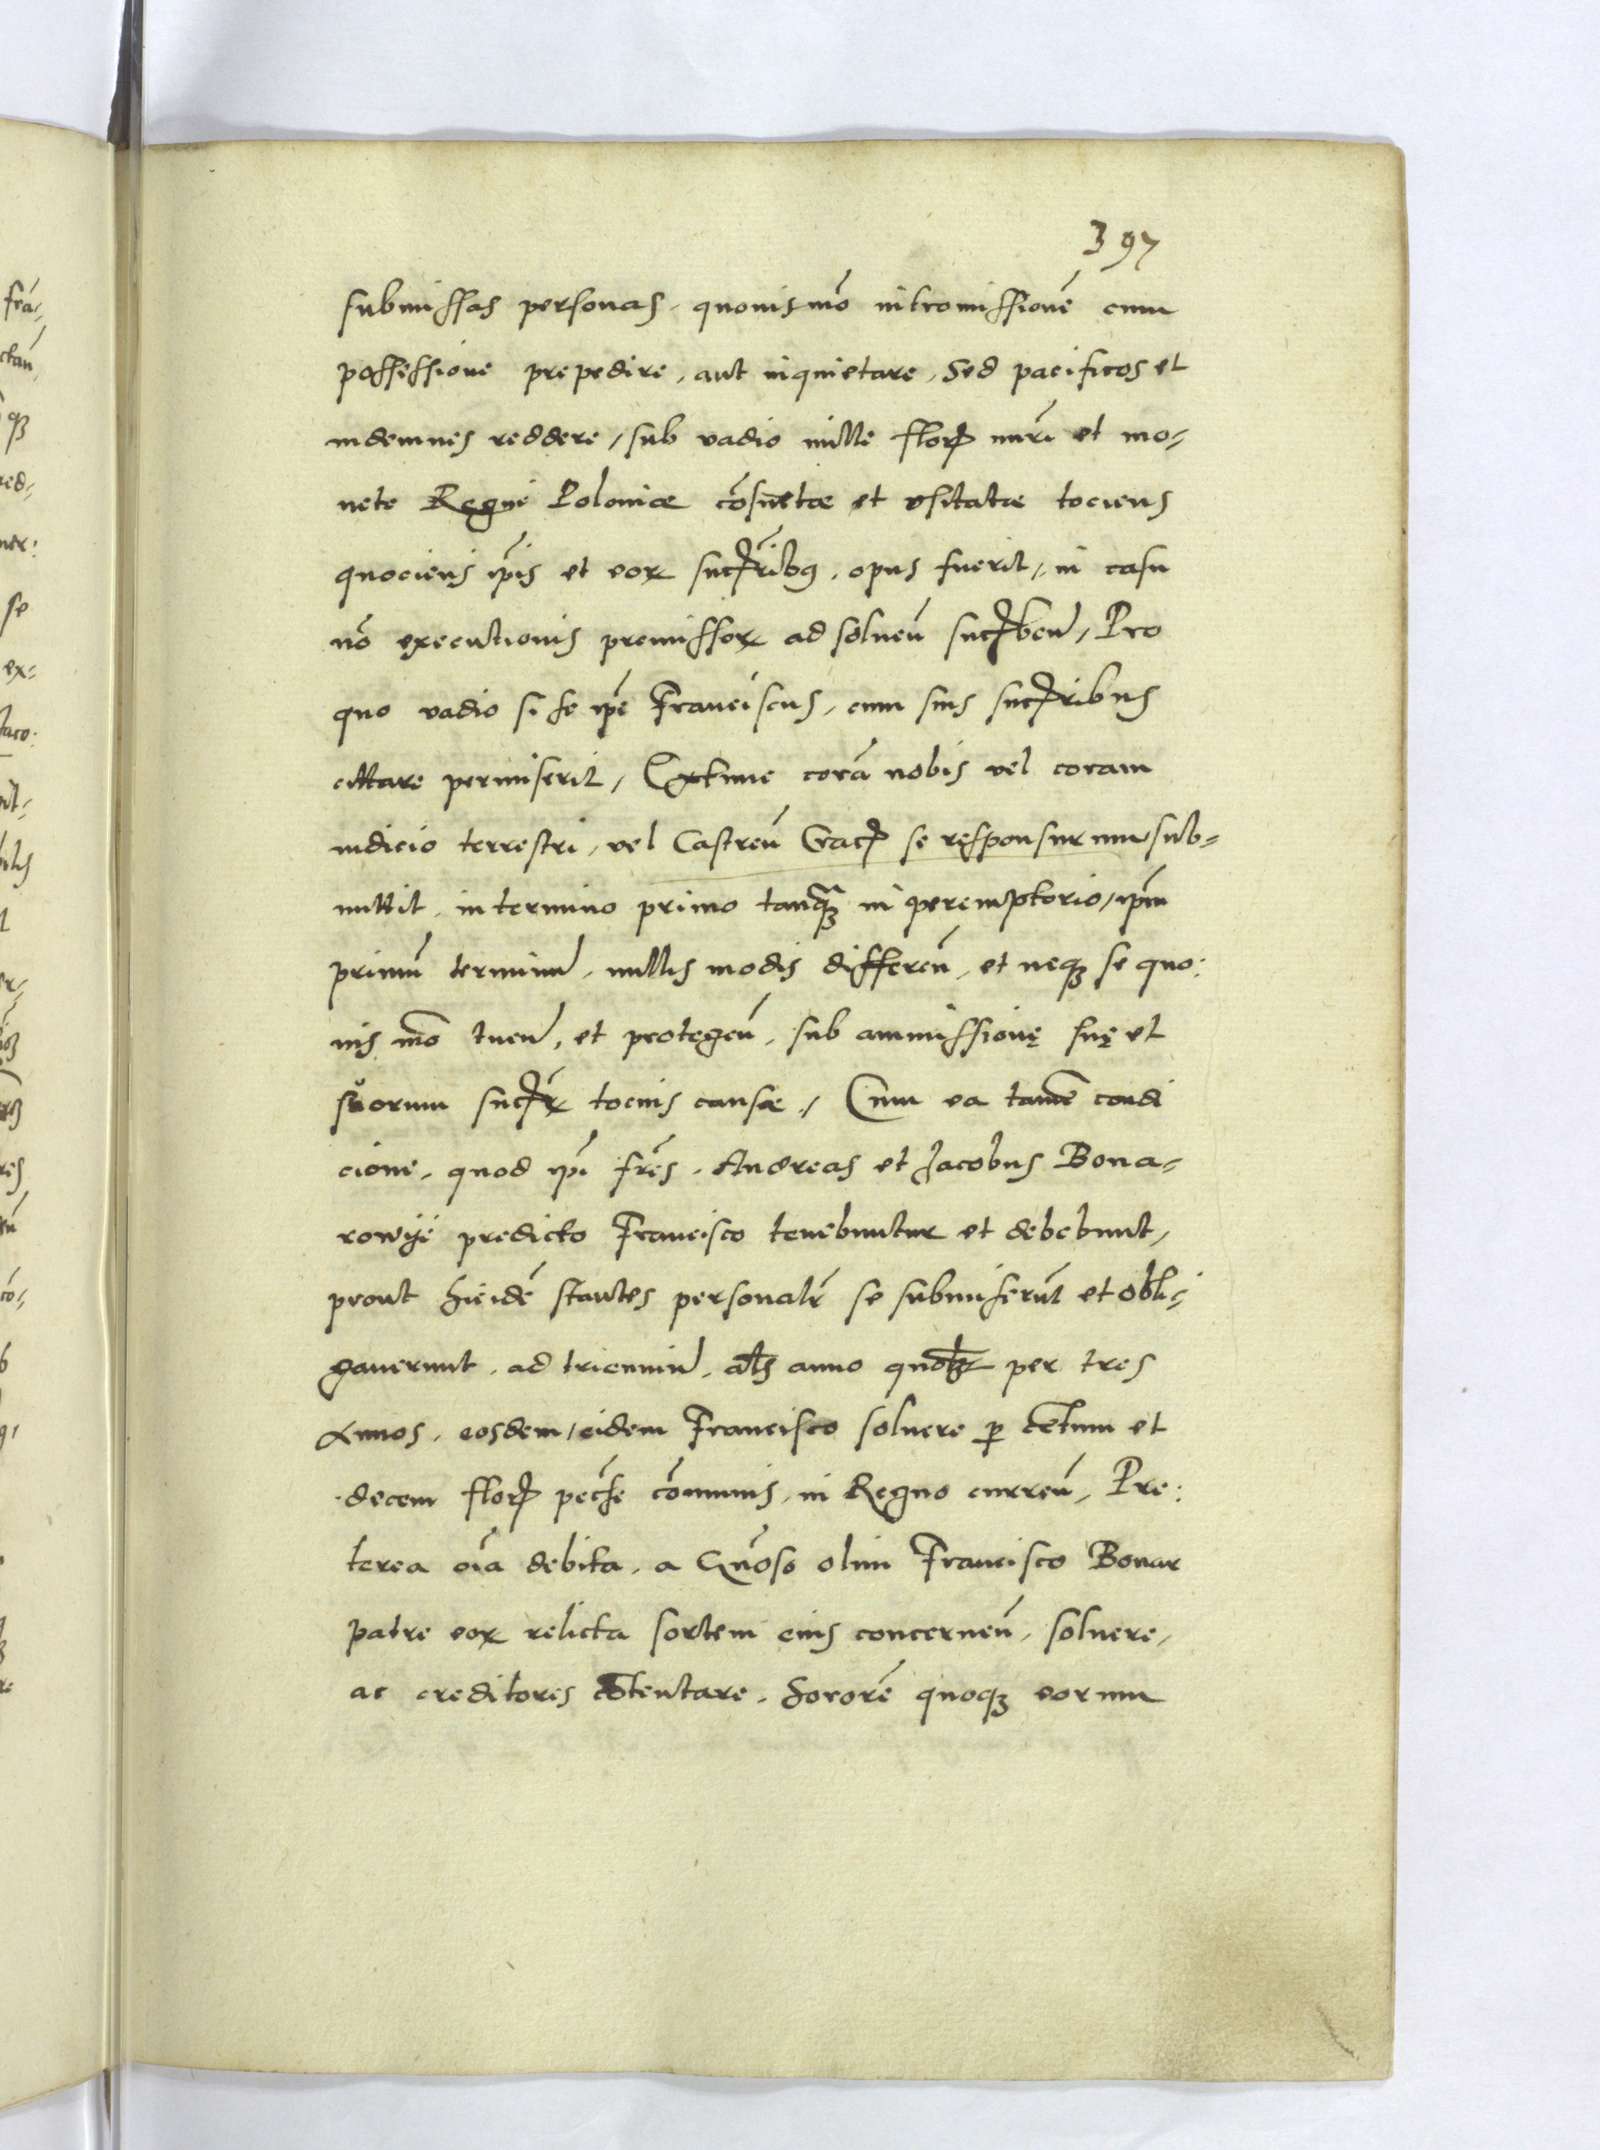 397
submissas personas. quovismo intromissione cum
possessione prepedire, aut inquietare, Sed pacificos et
indemnes reddere, sub vadio mille flor numeri et mo-
nete Regni Poloniæ cōsuetæ et vsitatæ tociens
quociens ipis et eor succribus, opus fuerit, in casu
nō executionis premissor ad soluen succūben, Pro
quo vadio si se ipē Franciscus, cum suis succribus
cittare permiserit, Extunc corā nobis vel coram
iudicio terrestri, vel Castren Crac se responsurum sub-
mittit, in termino primo tanq̃ in peremptorio, ipm
primū terminū, nullis modis differen, et neq; se quo:
vis mō tuen, et protegen, sub ammissionę suę et
suorum succr tocius causæ, Cum ea tamē condi
cione, quod ipi frēs, Andreas et Jacobus Bona-
rowÿe predicto Francisco tenebuntur et debebunt,
prout hiidē stantes personalr se submiserūt et obli-
gaverunt, ad trienniū, als anno quolz per tres
Annos, eosdem, eidem Francisco soluere p̱ cētum et
decem flor pec̄he cōmunis, in Regno curren, Pre:
terea oīa debita, a Gnōso olim Francisco Bonar
patre eor relicta sortem eius concernen, soluere,
ac creditores cōtentare, Sororē quoq; eorum